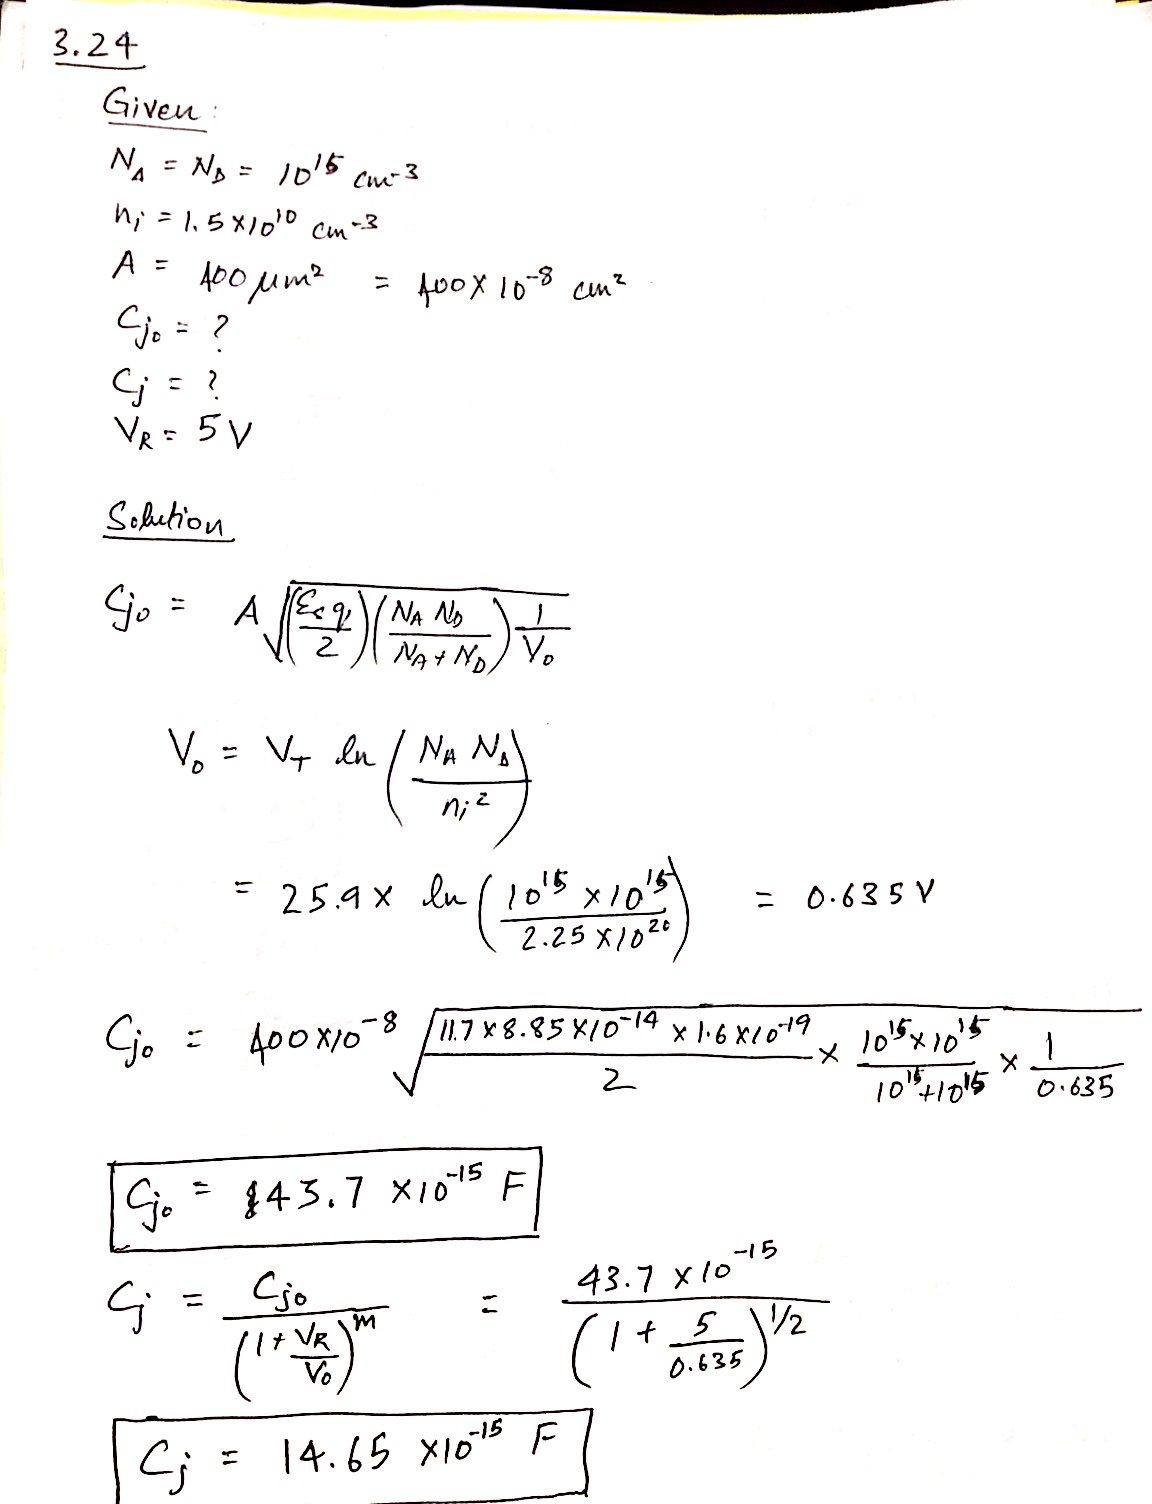 3.24
Given:
N_A = N_D = 10^15 cm^-3
n_i = 1.5 × 10^10 cm^-3
A = 400 μm² = 400 × 10^-8 cm²
C_jo = ?
C_j = ?
V_R = 5 V
Solution
C_jo = A √((ε_s q / 2) (N_A N_D / (N_A + N_D)) 1/V_o)
V_o = V_T ln (N_A N_D / n_i²)
= 25.9 × ln (10^15 × 10^15 / 2.25 × 10^20) = 0.635 V
C_jo = 400×10^-8 √(11.7 × 8.85 × 10^-14 × 1.6 × 10^-19 / 2 × 10^15 × 10^15 / (10^15 + 10^15) × 1 / 0.635)
C_jo = 43.7 × 10^-15 F
C_j = C_jo / (1 + V_R/V_o)^m = 43.7 × 10^-15 / (1 + 5/0.635)^1/2
C_j = 14.65 × 10^-15 F